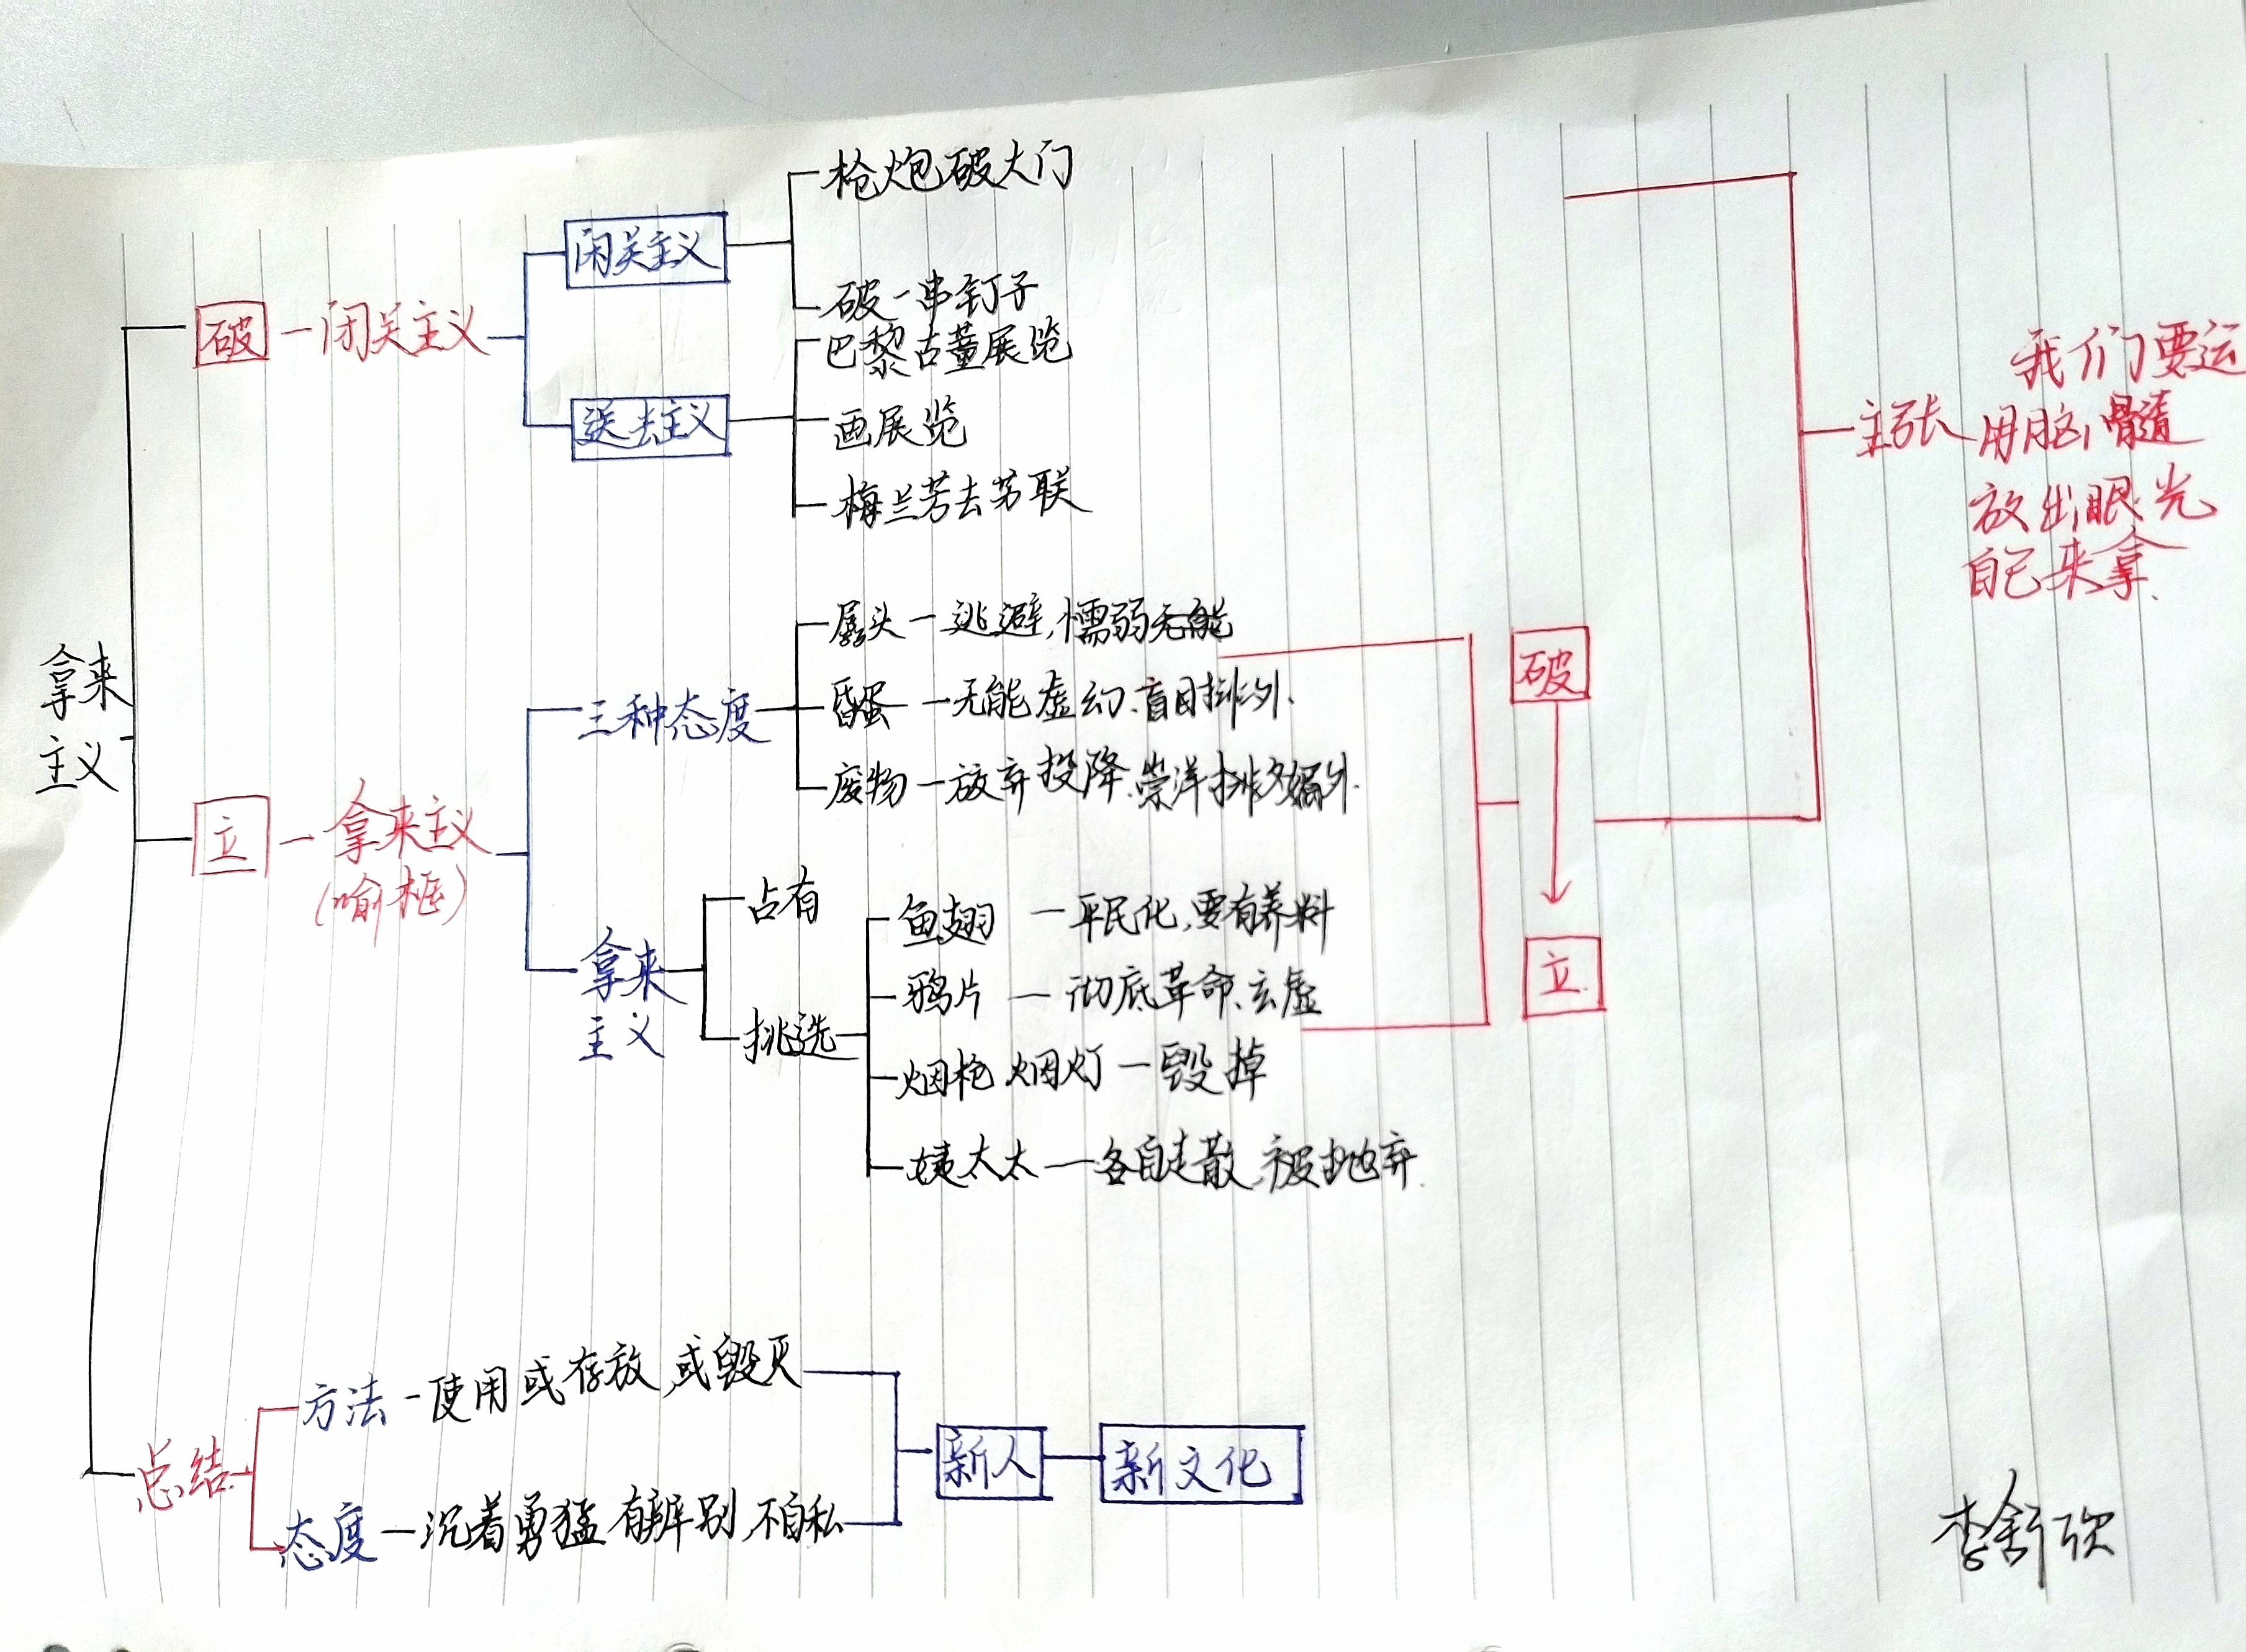 枪炮破大门
闭关主义
破一串钉子
破 — 闭关主义
巴黎古董展览
送去主义
画展览
梅兰芳去苏联
我们要运
主张 用脑髓
放出眼光
自己来拿.
拿来
主义
孱头 — 逃避,懦弱无能
三种态度
昏蛋 — 无能虚幻、盲目排外.
废物 — 放弃投降.崇洋媚外.
破
立 — 拿来主义
(喻框)
占有
鱼翅 — 平民化,要有养料
拿来
主义
鸦片 — 彻底革命、去虚
立
挑选
烟枪 烟灯 — 毁掉
姨太太 — 各自走散,被抛弃.
方法 - 使用或存放,或毁灭
总结
新人 — 新文化
态度 — 沉着勇猛 有辨别,不自私
李舒欣